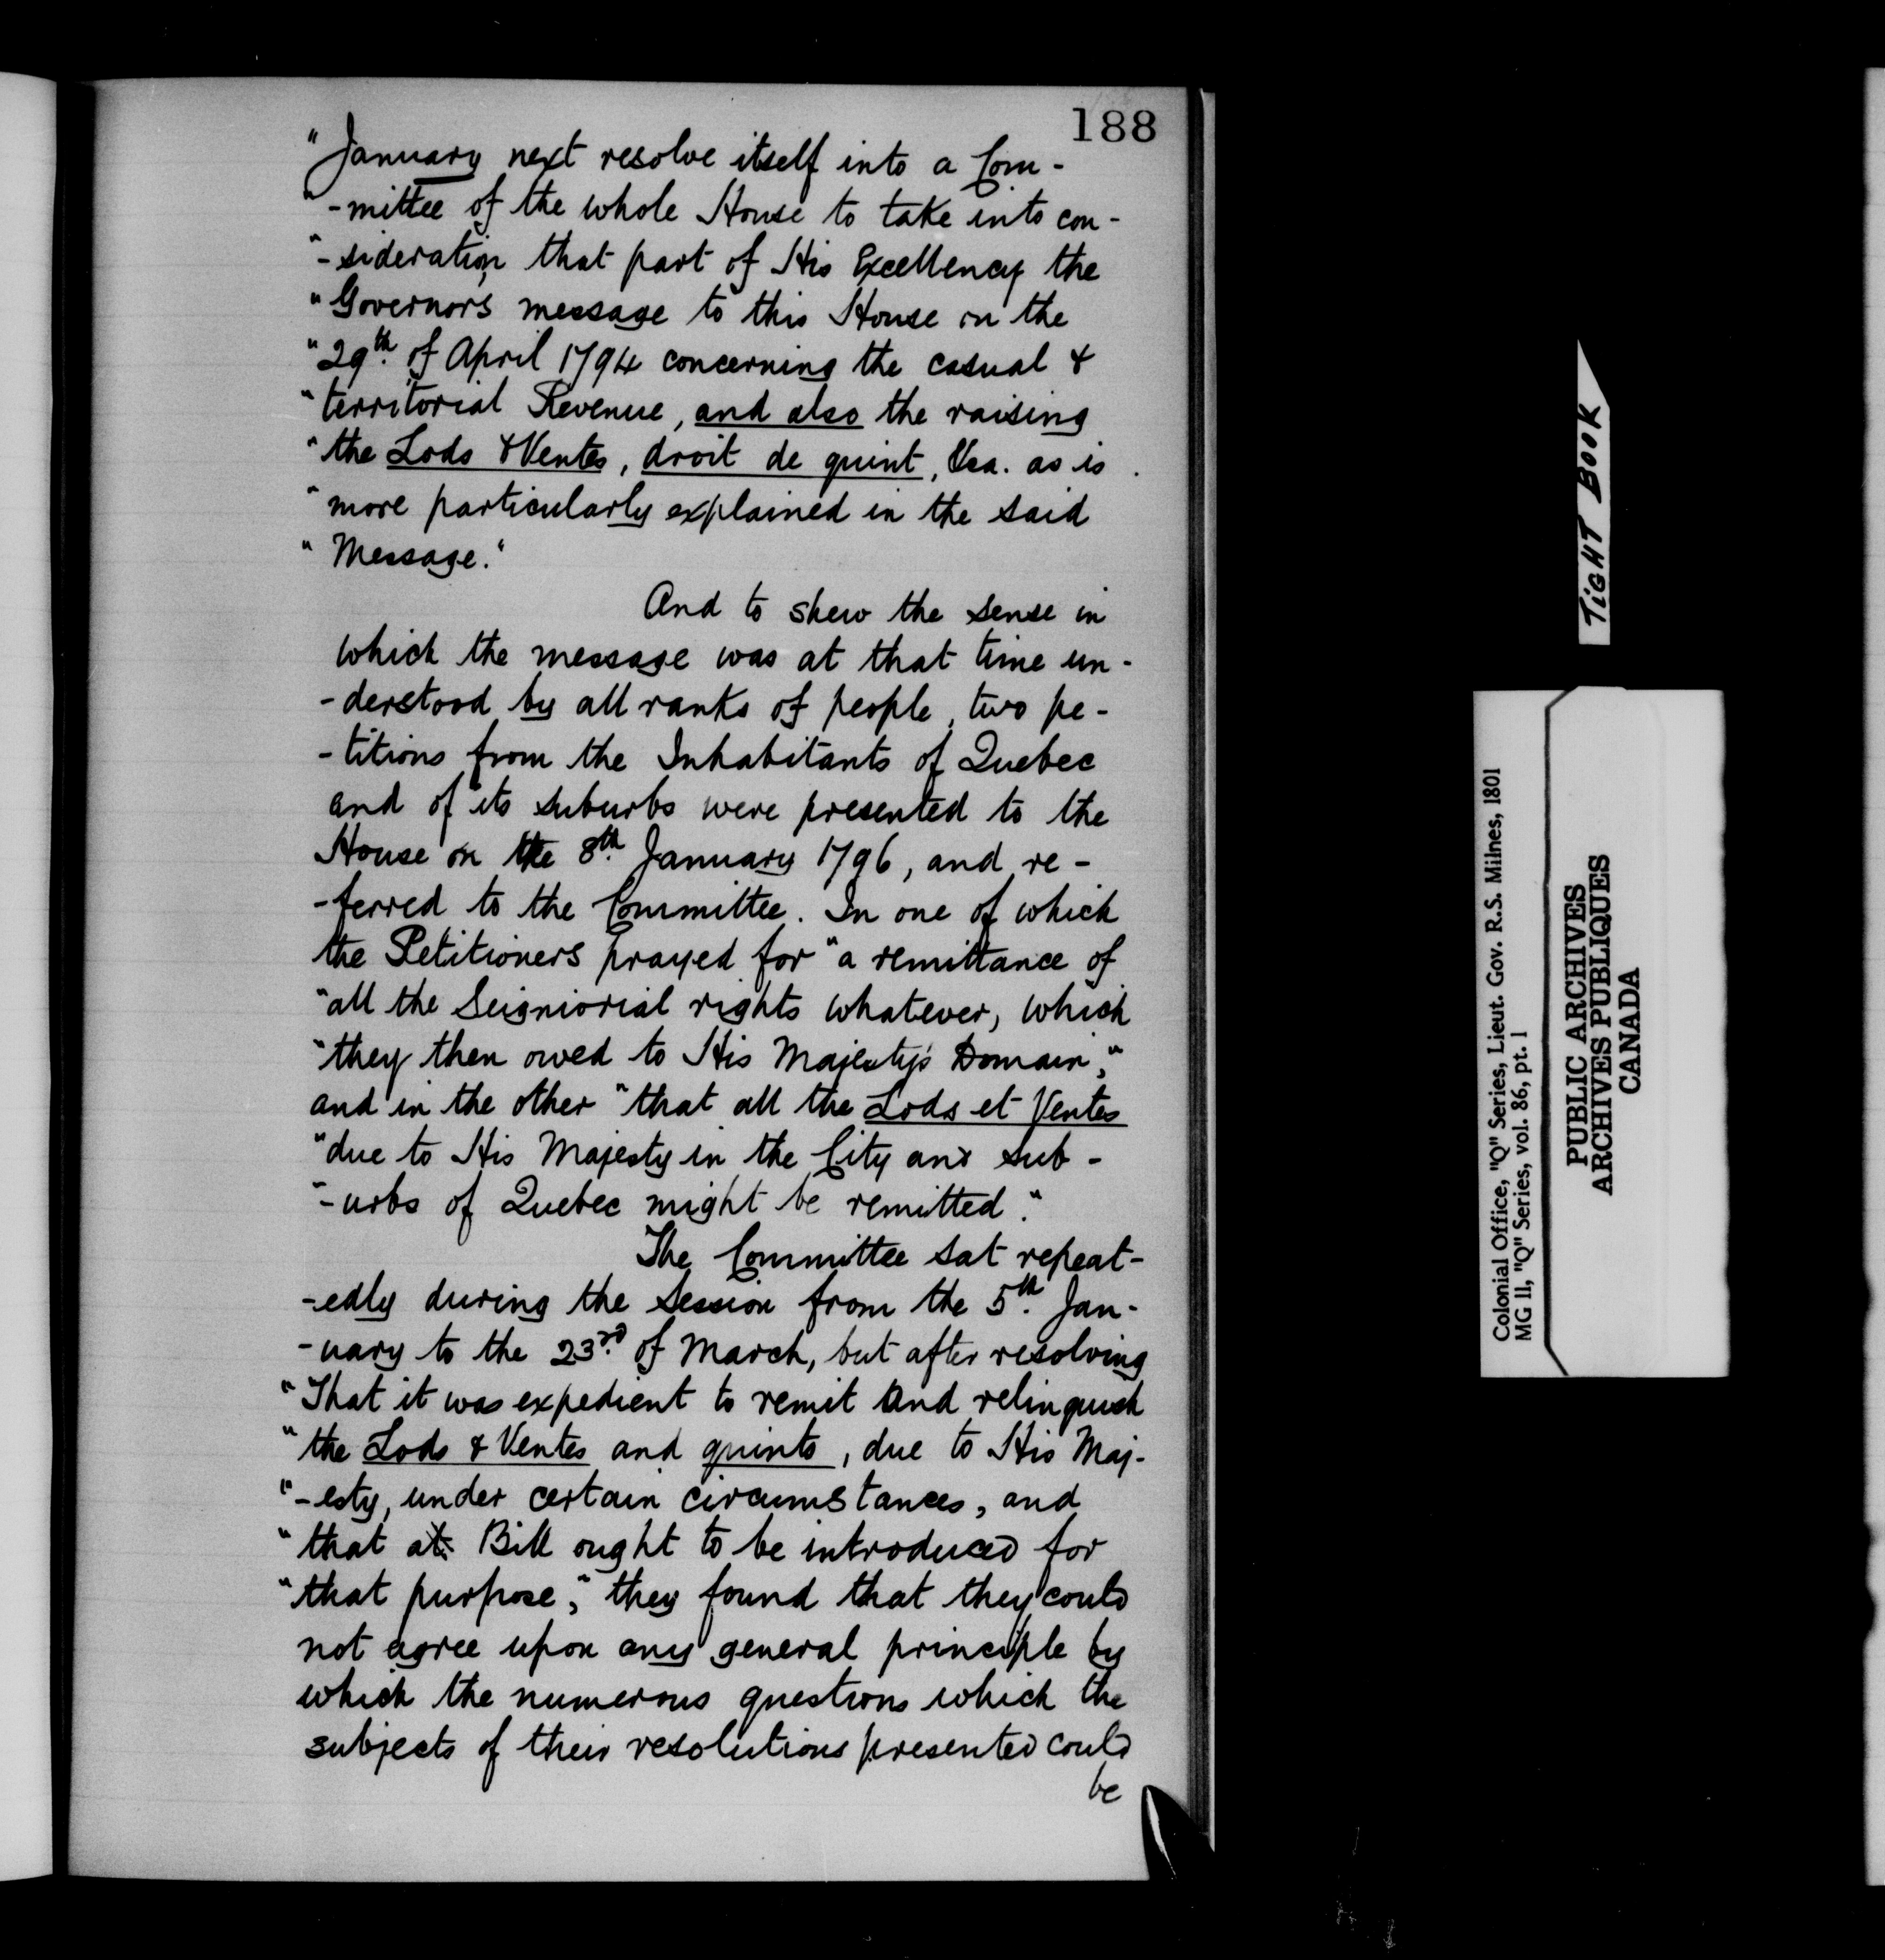 188
"January next resolve itself into a Com-
"-mittee of the whole House to take into con-
"-sideration that part of His Excellency the
"Governor's message to this House on the
"29th. of April 1794 concerning the casual &
"territorial Revenue, and also the raising
"the Lods & Ventes, droit de quint, &ca. as is
"more particularly explained in the said
"Message."
And to shew the sense in
which the message was at that time un-
-derstood by all ranks of people, two pe-
-titions from the Inhabitants of Quebec
and of its suburbs were presented to the
House on the 8th. January 1796, and re-
-ferred to the Committee. In one of which
the Petitioners prayed for "a remittance of
"all the Seigniorial rights whatever, which
"they then owed to His Majesty's Domain,"
and in the other "that all the Lods et Ventes
"due to His Majesty in the City and sub-
"-urbs of Quebec might be remitted."
The Committee sat repeat-
-edly during the Session from the 5th. Jan-
-uary to the 23rd. of March, but after resolving
"That it was expedient to remit and relinquish
"the Lods & Ventes and quints, due to His Maj-
"-esty, under certain circumstances, and
"that a Bill ought to be introduced for
"that purpose," they found that they could
not agree upon any general principle by
which the numerous questions which the
subjects of their resolutions presented could
be
TIGHT BOOK
Colonial Office, "Q" Series, Lieut. Gov. R.S. Milnes, 1801
MG 11, "Q" Series, vol. 86, pt. 1
PUBLIC ARCHIVES
ARCHIVES PUBLIQUES
CANADA